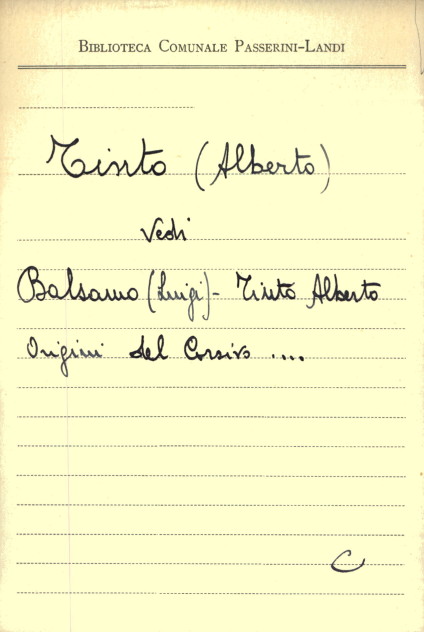 BIBLIOTECA COMUNALE PASSERINI-LANDI
Tinto (Alberto)
Vedi
Balsamo (Luigi) - Tinto Alberto
Origini del Corsivo ....
C